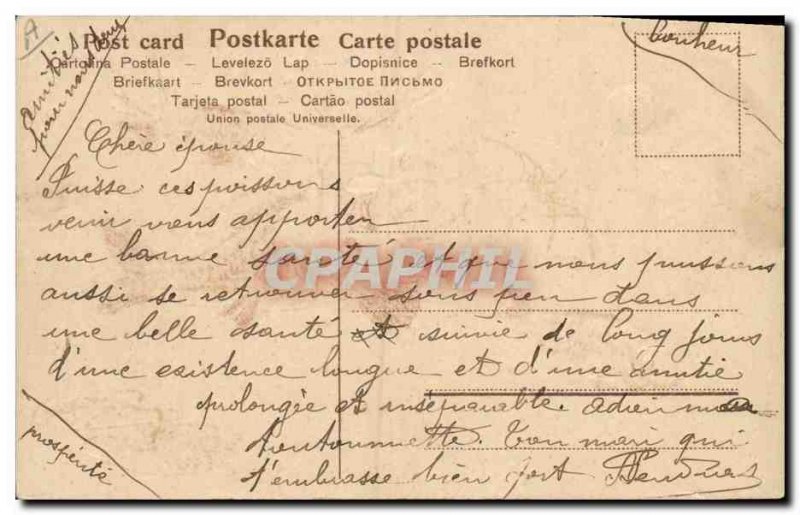 A
Post card Postkarte Carte postale
Cartolina Postale – Levelező Lap – Dopisnice – Brefkort
Briefkaart – Brevkort – ОТКРЫТОЕ ПИСЬМО
Tarjeta postal – Cartão postal
Union postale Universelle.
amitiés
pour nous
bonheur
Chère épouse
Puisse ces poissons
venir vous apporter
une bonne santé et que nous puissions
aussi se retrouver sous peu dans
une belle santé et suivie de long jours
d'une existence longue et d'une amitié
prolongée et inséparable. adieu ma
toutounette. Ton mari qui
t'embrasse bien fort
prospérité
CPAPHIL